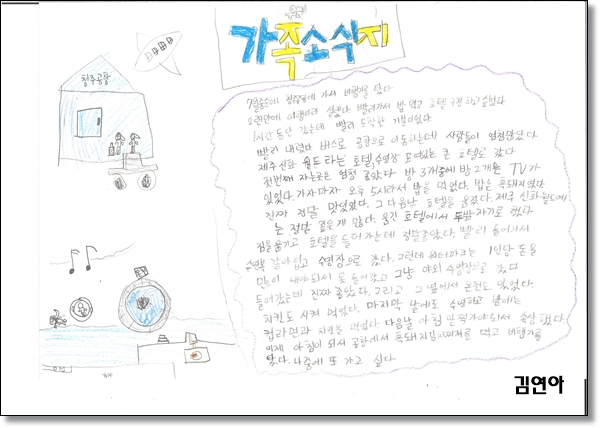 우리
가족소식지
청주공항
7월중순에 청주공항에 가서 비행기를 탔다.
오랜만에 여행이라 설렜다. 빨리가서 밥 먹고 호텔 구경하고 싶었다.
1시간 동안 갔는데 빨리 도착한 기분이었다.
빨리 내렸다 버스로 공항으로 이동하는데 사람들이 엄청많았다
제주신화 월드 라는 호텔,수영장 모여있는 큰 호텔로 갔다
첫번째 자는곳은 엄청 좋았다 방 3개중에 방 2개를 TV가
있었다. 가자마자 오후 5시라서 밥을 먹었다. 밥은 흑돼지였다
진짜 정말 맛있었다. 그 다음날 호텔을 옮겼다. 제주 신화월드에
는 정말 좋은게 많다. 옮긴 호텔에서 두밤자기로 했다
짐을 옮기고 호텔을 들어가는데 정말좋았다. 빨리 들어가서
수영복 갈아입고 수영장으로 갔다. 그런데 워터파크는 1인당 돈을
많이 내야되서 못 들어갔고 그냥 야외 수영장으로 갔다
들어갔는데 진짜 좋았다. 그리고 그 옆에서 온천도 있었다.
치킨도 시켜 먹었다. 마지막 날에도 수영하고 밤에는
컵라면과 치킨을 먹었다. 다음날 아침 일찍가야되서 속상했다.
이제 아침이 되서 공항에서 흑돼지김치찌개를 먹고 비행기를
탔다. 나중에 또 가고 싶다.
김연아